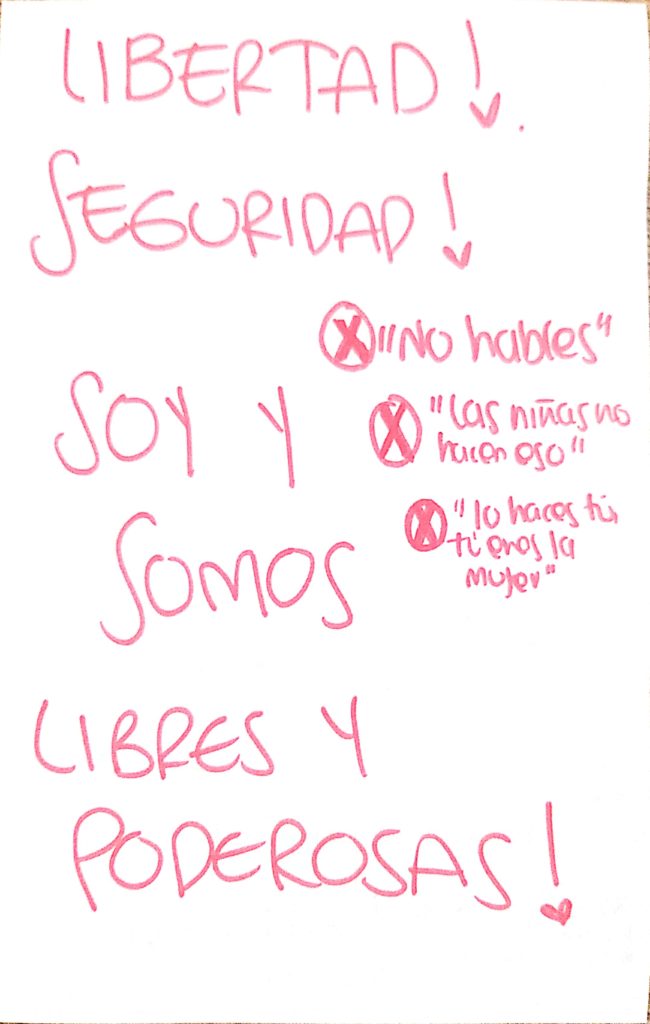 LIBERTAD!
SEGURIDAD!
X "No hables"
SOY Y
X "Las niñas no
hacen eso"
X "lo haces tú,
tú eres la
mujer"
SOMOS
LIBRES Y
PODEROSAS!